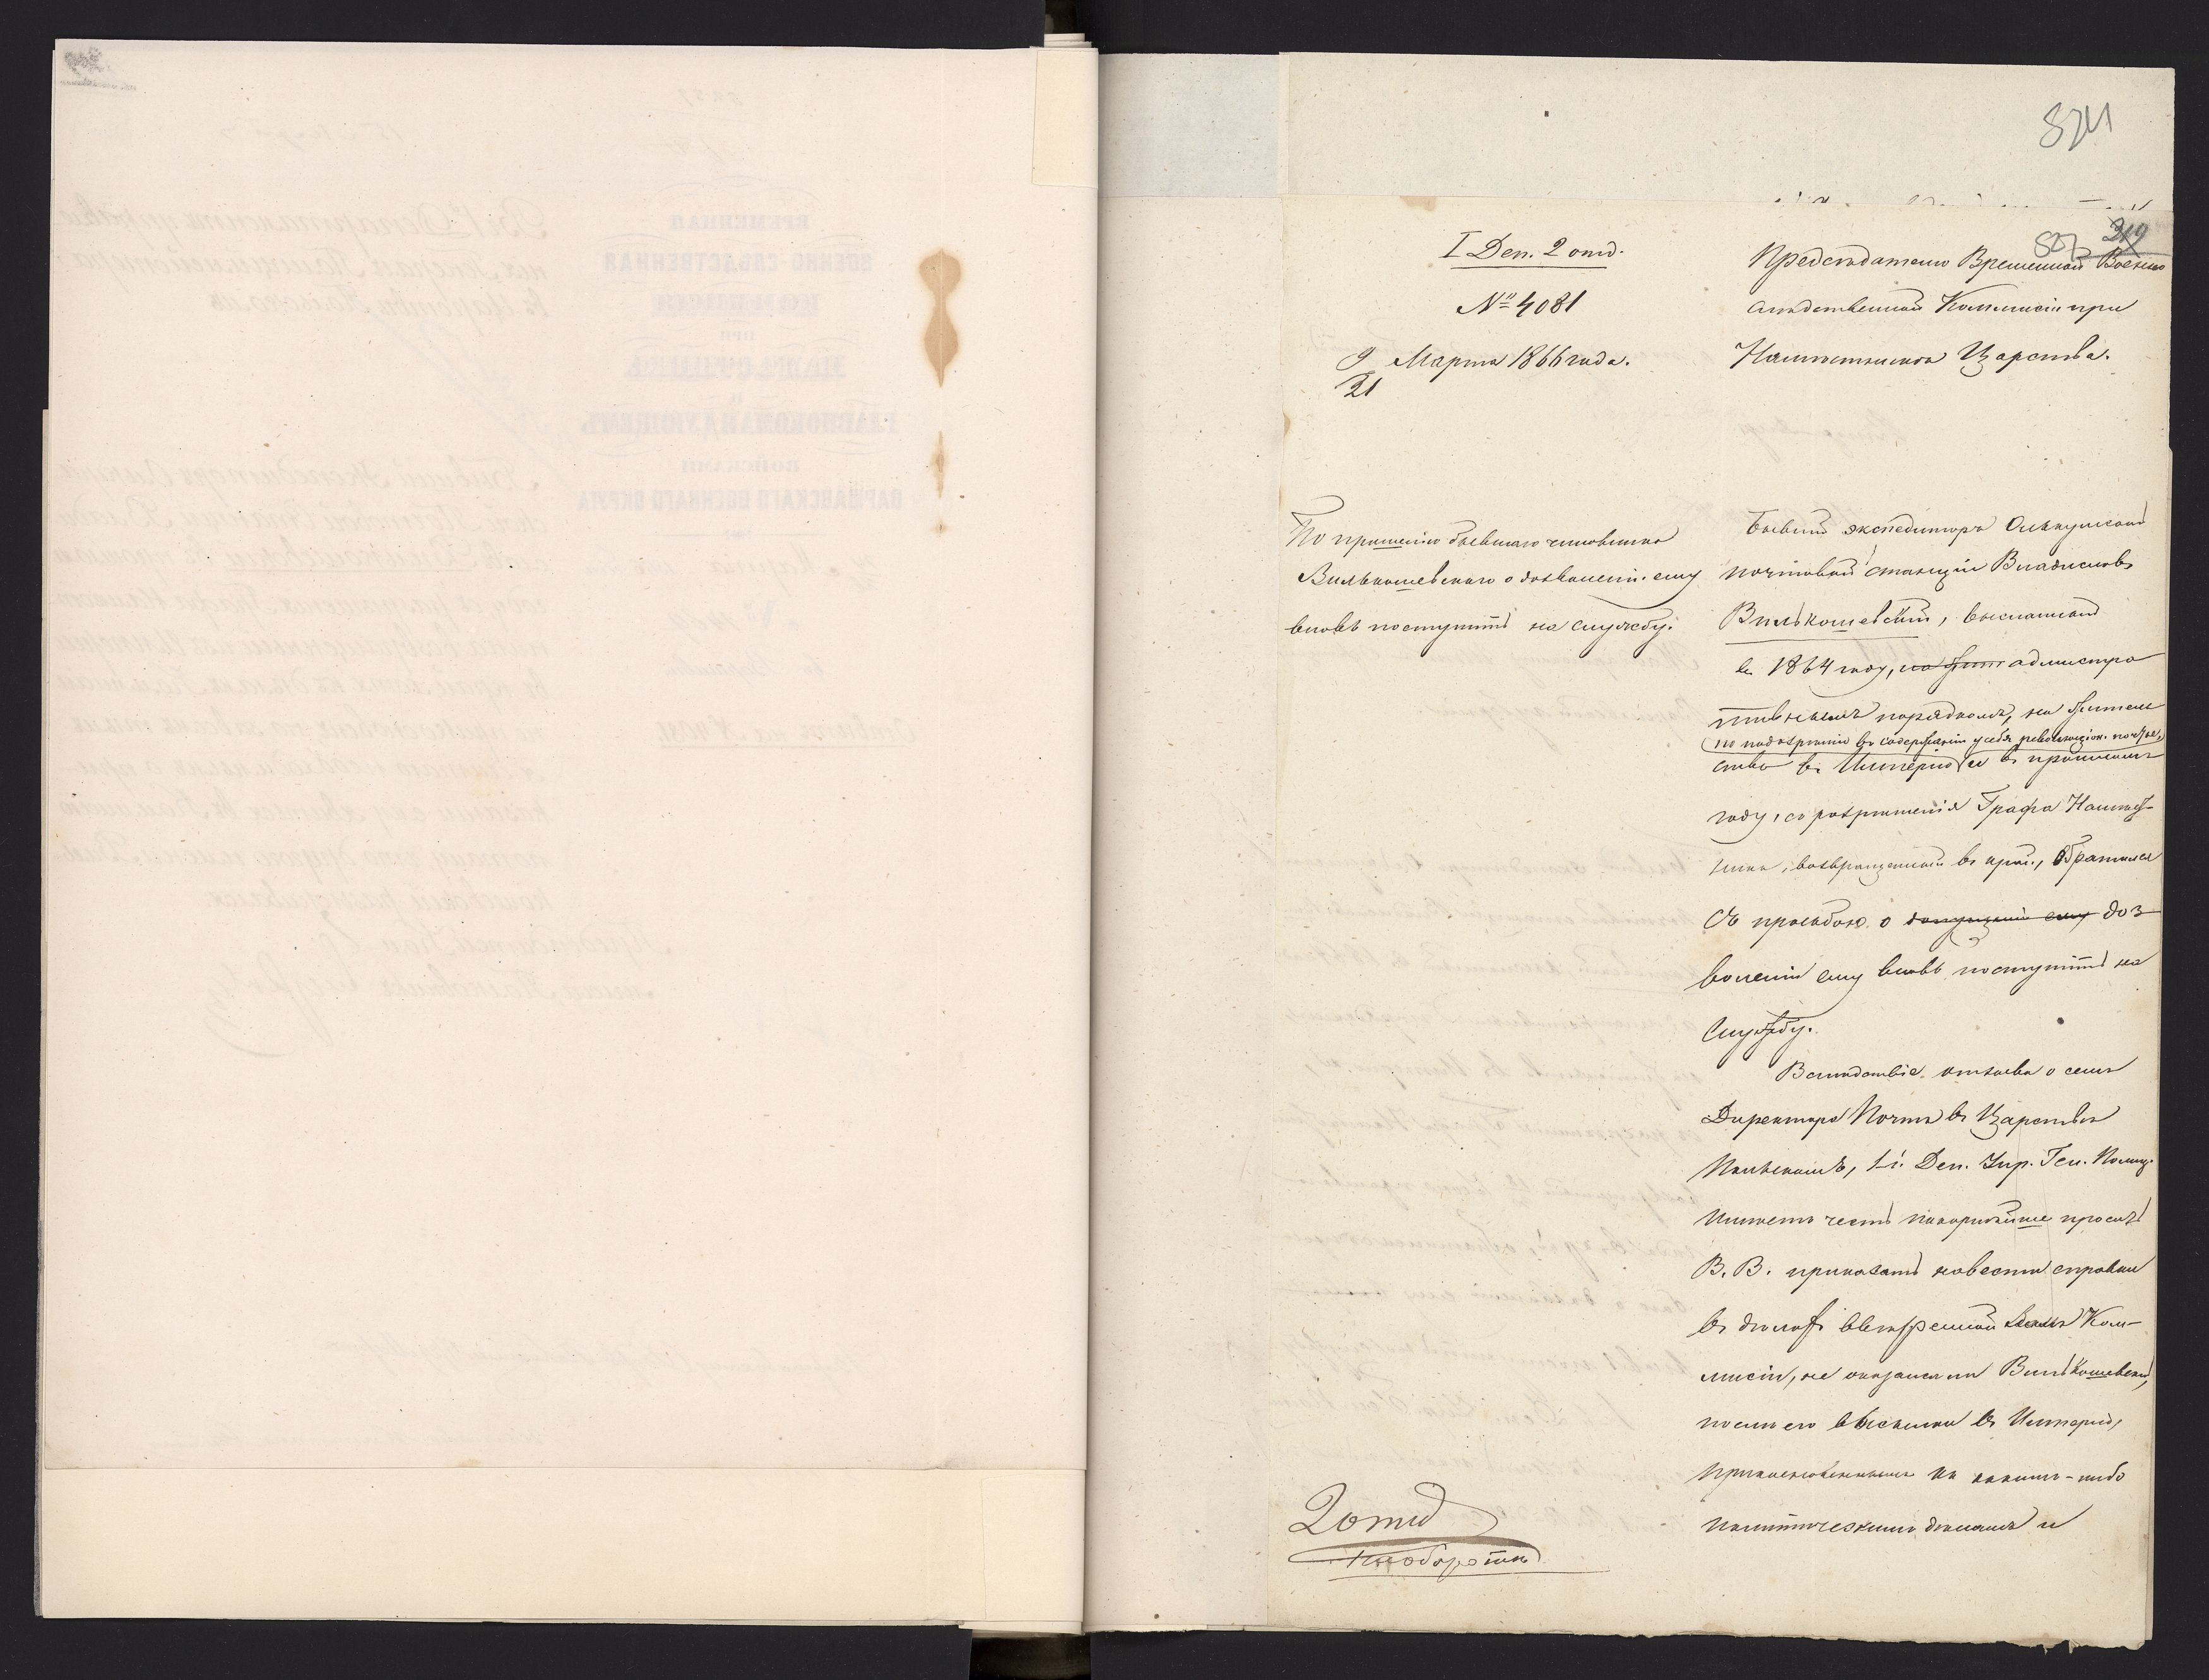 821
219
807
I Деп. 2 отд.
№ 4081
9 Марта 1866 года.
21
Предсѣдателю Временной Военно
слѣдственной Коммисіи при
Намѣстникѣ Царства.
По прошенію бывшаго чиновника
Вилькошевскаго о дозволеніи ему
вновь поступить на службу.
Бывшій экспедиторъ Олькушской
почтовой станціи Владиславъ
Вилькошевскій, высланный
въ 1864 году, администра
тивнымъ порядкомъ, на житель
по подозрѣнію въ содержаніи у себя революціон. почты,
ство въ Имперію и въ прошломъ
году, съ разрѣшенія Графа Намѣст-
ника, возвращенный въ край, обратился
съ просьбою о допущеніи ему доз
воленіи ему вновь поступить на
службу.
Вслѣдствіе отзыва о семъ
Директора Почтъ въ Царствѣ
Польскомъ, 1-й Деп. Упр. Ген. Полиц.
имѣетъ честь покорнѣйше просить
В. В. приказать навести справки
въ дѣлахъ ввѣренной Вамъ Ком-
мисіи, не оказался ли Вилькошевскій,
послѣ его высылки въ Имперію,
прикосновеннымъ къ какимъ-либо
политическимъ дѣламъ и
2 отд
на оборотѣ